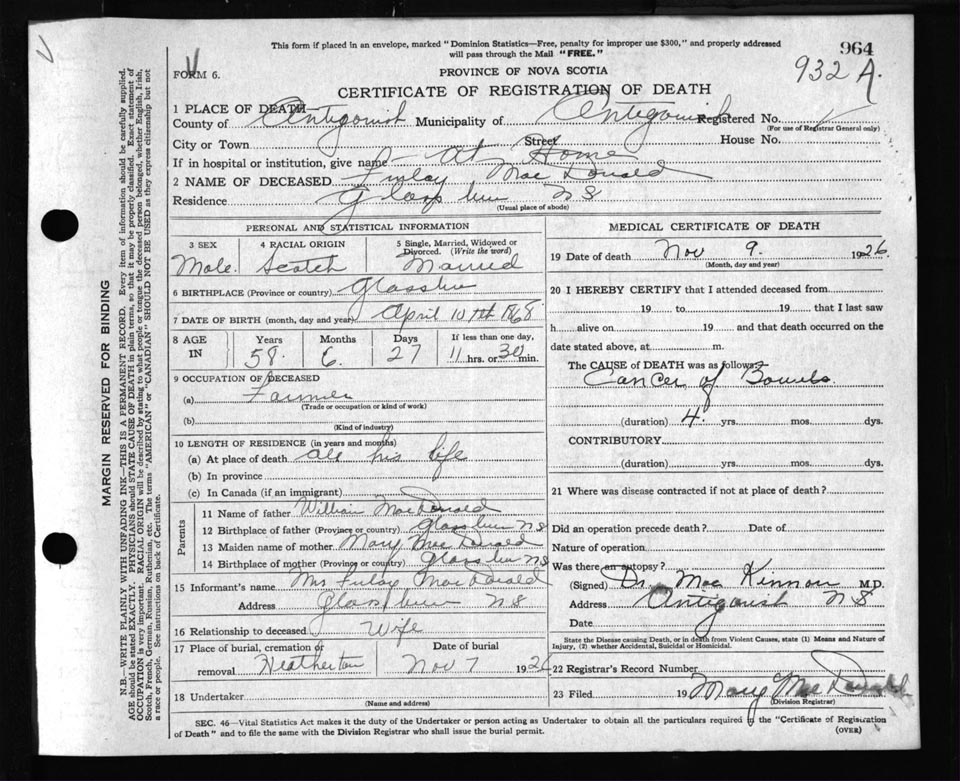 This form if placed in an envelope, marked "Dominion Statistics—Free, penalty for improper use $300," and properly addressed
will pass through the Mail "FREE."
964
932 A.
FORM 6.
PROVINCE OF NOVA SCOTIA
CERTIFICATE OF REGISTRATION OF DEATH
1 PLACE OF DEATH
County of Antigonish Municipality of Antigonish Registered No.
(For use of Registrar General only)
City or Town Street House No.
If in hospital or institution, give name - at Home
2 NAME OF DECEASED Finlay MacDonald
Residence Glassburn NS
(Usual place of abode)
PERSONAL AND STATISTICAL INFORMATION
3 SEX 4 RACIAL ORIGIN 5 Single, Married, Widowed or Divorced. (Write the word)
Male. Scotch Married
6 BIRTHPLACE (Province or country) Glassburn
7 DATE OF BIRTH (month, day and year) April 10th 1868
8 AGE IN Years Months Days If less than one day,
58. 6. 27 11 hrs. or 30 min.
9 OCCUPATION OF DECEASED
(a) Farmer
(Trade or occupation or kind of work)
(b)
(Kind of industry)
10 LENGTH OF RESIDENCE (in years and months)
(a) At place of death all his life
(b) In province
(c) In Canada (if an immigrant)
Parents
11 Name of father William MacDonald
12 Birthplace of father (Province or country) Glassburn NS
13 Maiden name of mother Mary MacDonald
14 Birthplace of mother (Province or country) Glassburn NS
15 Informant's name Mrs Finlay MacDonald
Address Glassburn NS
16 Relationship to deceased Wife
17 Place of burial, cremation or removal Heatherton
Date of burial Nov 7 1926
18 Undertaker
(Name and address)
MEDICAL CERTIFICATE OF DEATH
19 Date of death Nov 9. 1926.
(Month, day and year)
20 I HEREBY CERTIFY that I attended deceased from
19 to 19 that I last saw
h alive on 19 and that death occurred on the
date stated above, at m.
The CAUSE of DEATH was as follows:
Cancer of Bowels.
(duration) 4. yrs. mos. dys.
CONTRIBUTORY
(duration) yrs. mos. dys.
21 Where was disease contracted if not at place of death?
Did an operation precede death? Date of
Nature of operation
Was there an autopsy?
(Signed) Dr. MacKinnon M.D.
Address Antigonish NS
Date
State the Disease causing Death, or in death from Violent Causes, state (1) Means and Nature of
Injury, (2) whether Accidental, Suicidal or Homicidal.
22 Registrar's Record Number
23 Filed 19 Mary MacDonald
(Division Registrar)
SEC. 46—Vital Statistics Act makes it the duty of the Undertaker or person acting as Undertaker to obtain all the particulars required in the "Certificate of Registration
of Death" and to file the same with the Division Registrar who shall issue the burial permit.
(OVER)
MARGIN RESERVED FOR BINDING
N.B.—WRITE PLAINLY WITH UNFADING INK—THIS IS A PERMANENT RECORD. Every item of information should be carefully supplied.
AGE should be stated EXACTLY. PHYSICIANS should STATE CAUSE OF DEATH in plain terms, so that it may be properly classified. Exact statement of
OCCUPATION is very important. RACIAL ORIGIN will be described by stating to what people or tongue the deceased person belonged, whether English, Irish,
Scotch, French, German, Russian, Ruthenian, etc. The terms "AMERICAN" or "CANADIAN" SHOULD NOT BE USED as they express citizenship but not
a race or people. See instructions on back of Certificate.